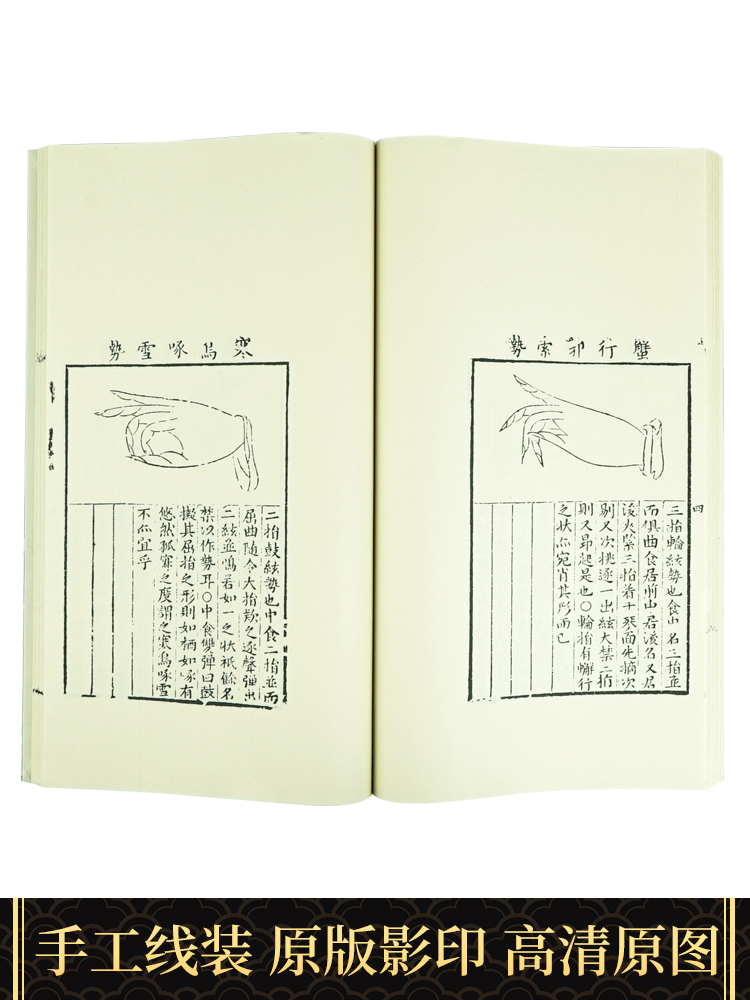 蟹行郭索勢
三指輪絃勢也食中名三指並
而俱曲食居前中居後名又居
後火緊三指着十爽面先摘次
剔又次挑逐一出絃大禁二指
則又昂起是也〇輪指有蟹行
之狀你宛肖其形而已
四
寒烏啄雪勢
二指鼓絃勢也中食二指並而
屈曲隨令大指欵之逐聲弹出
二絃並鳴若如一之状祇餘名
禁以作勢耳〇中食雙弹曰鼓
擬其屈指之形則如栖如啄有
悠然孤寒之度謂之寒烏啄雪
不你宜乎
手工线装 原版影印 高清原图